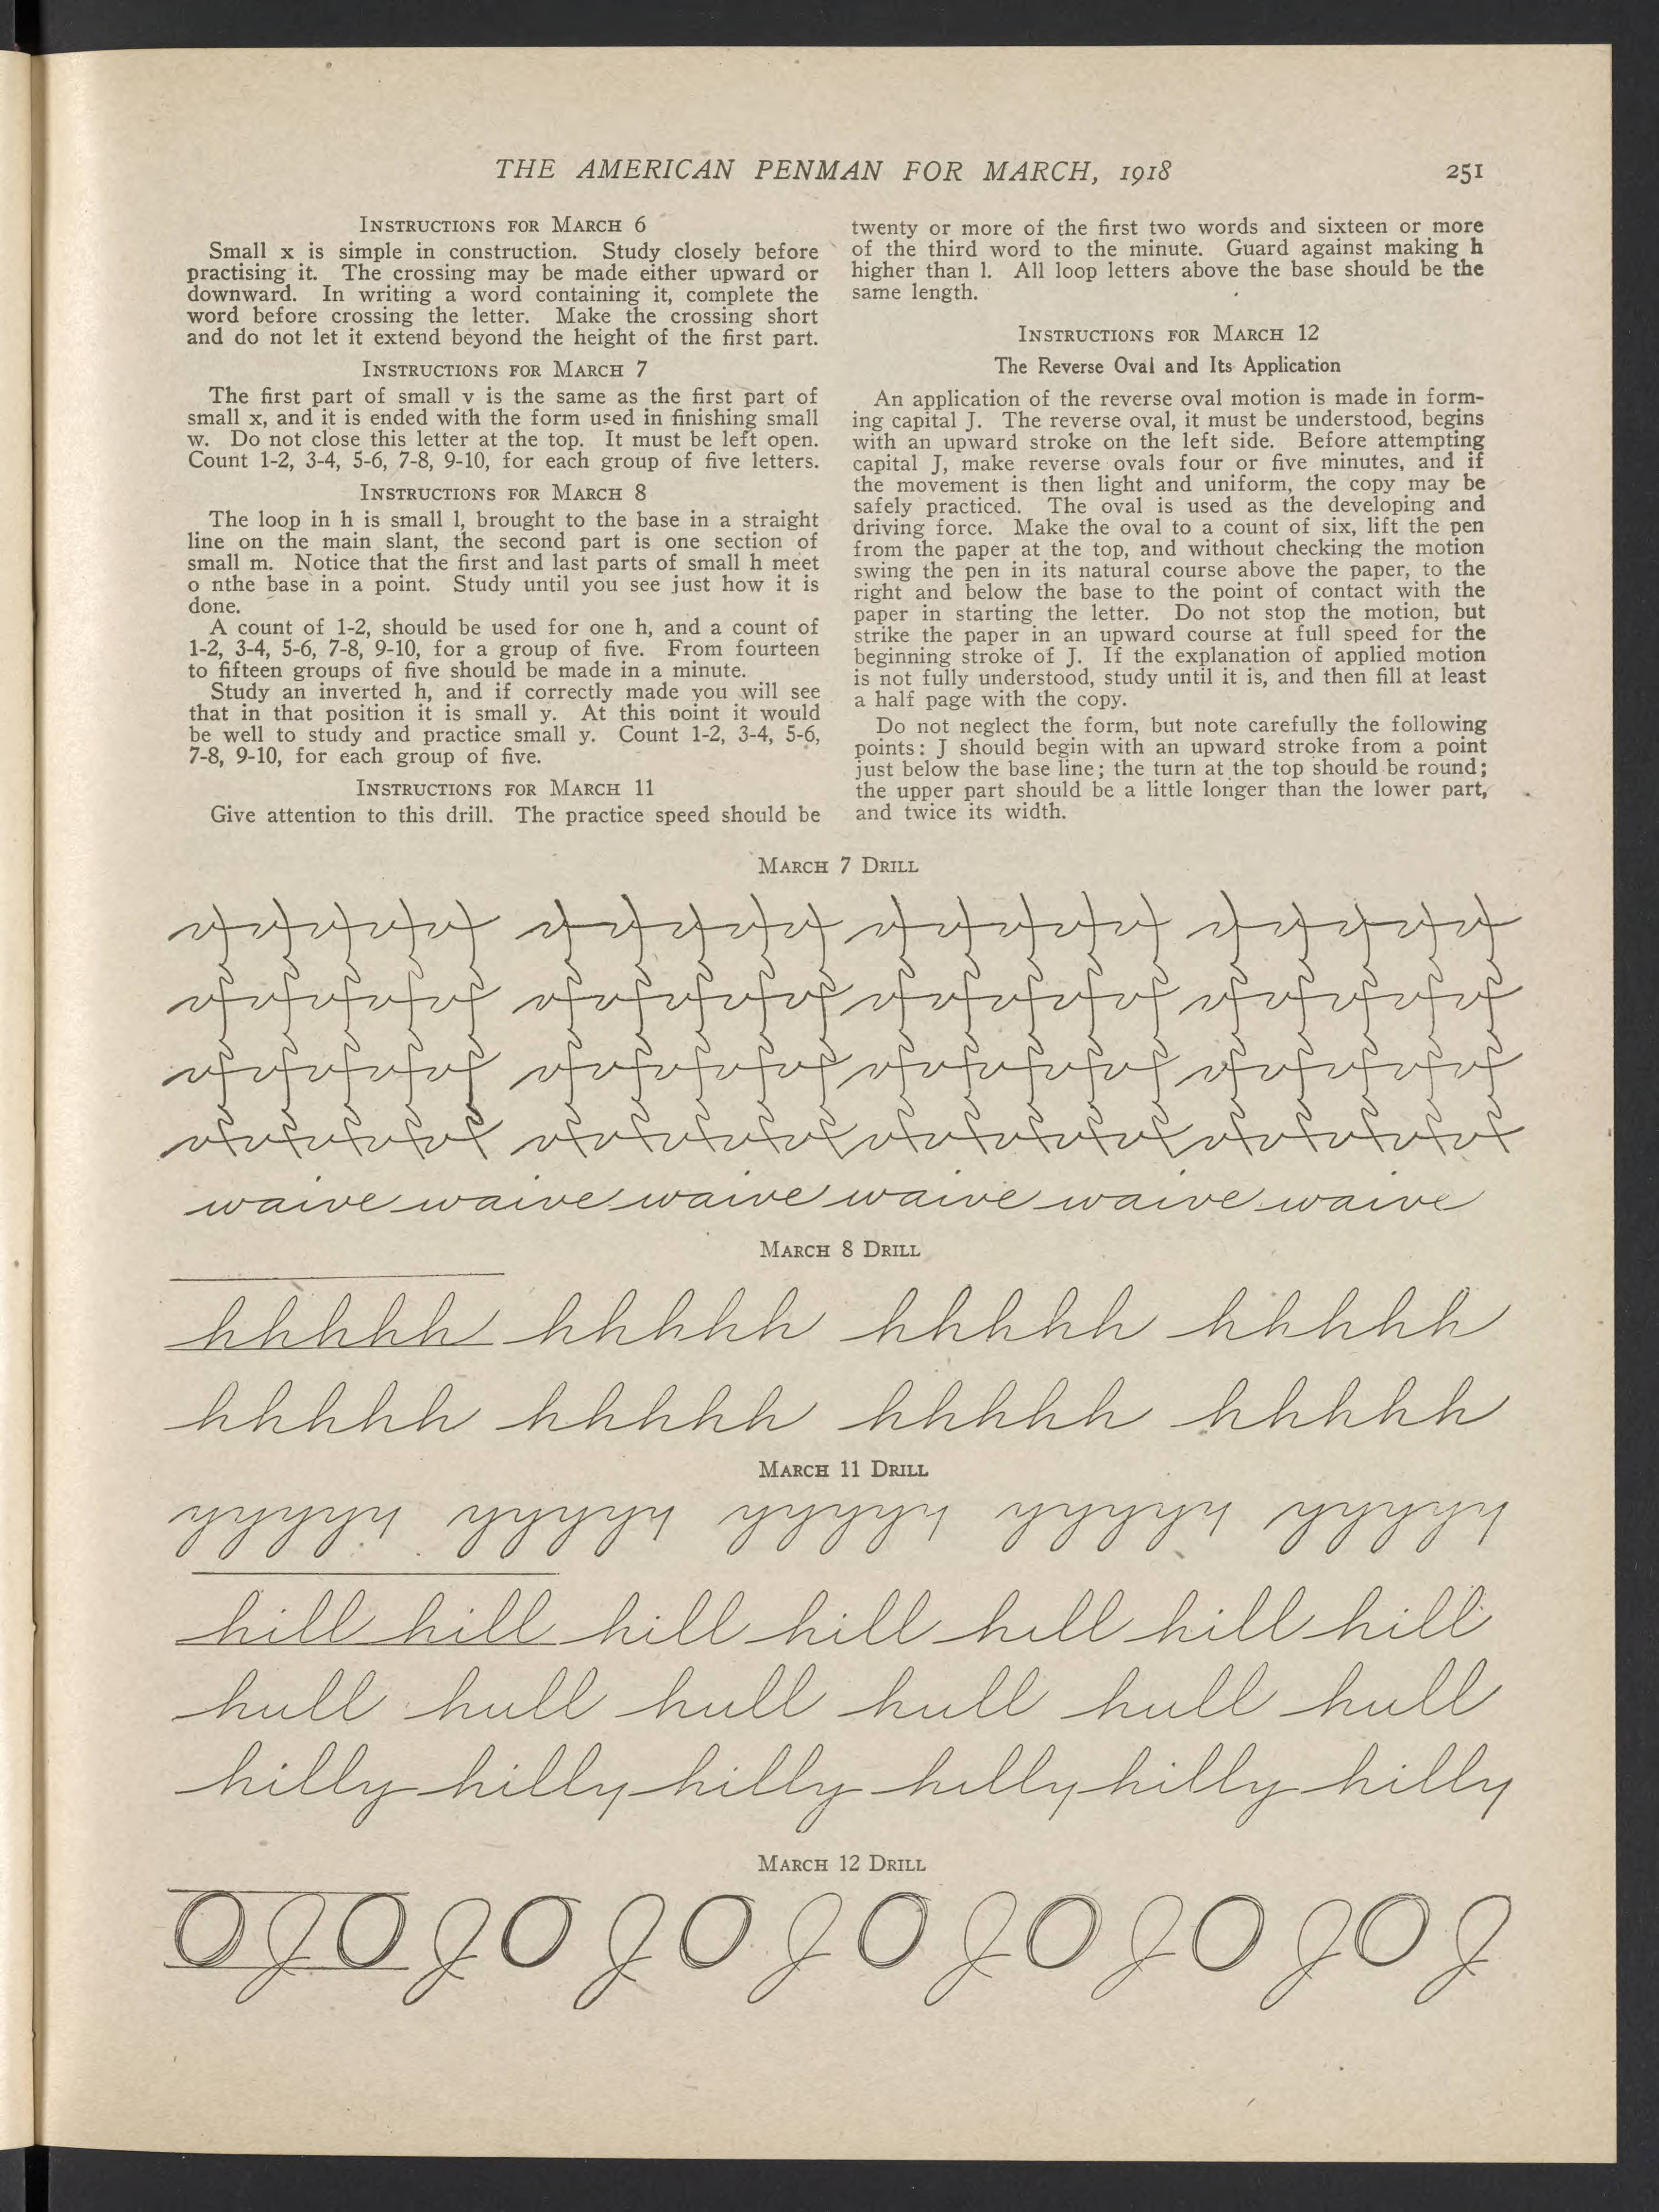 THE AMERICAN PENMAN FOR MARCH, 1918
251
INSTRUCTIONS FOR MARCH 6
Small x is simple in construction. Study closely before
practising it. The crossing may be made either upward or
downward. In writing a word containing it, complete the
word before crossing the letter. Make the crossing short
and do not let it extend beyond the height of the first part.
INSTRUCTIONS FOR MARCH 7
The first part of small v is the same as the first part of
small x, and it is ended with the form used in finishing small
w. Do not close this letter at the top. It must be left open.
Count 1-2, 3-4, 5-6, 7-8, 9-10, for each group of five letters.
INSTRUCTIONS FOR MARCH 8
The loop in h is small l, brought to the base in a straight
line on the main slant, the second part is one section of
small m. Notice that the first and last parts of small h meet
o nthe base in a point. Study until you see just how it is
done.
A count of 1-2, should be used for one h, and a count of
1-2, 3-4, 5-6, 7-8, 9-10, for a group of five. From fourteen
to fifteen groups of five should be made in a minute.
Study an inverted h, and if correctly made you will see
that in that position it is small y. At this point it would
be well to study and practice small y. Count 1-2, 3-4, 5-6,
7-8, 9-10, for each group of five.
INSTRUCTIONS FOR MARCH 11
Give attention to this drill. The practice speed should be
twenty or more of the first two words and sixteen or more
of the third word to the minute. Guard against making h
higher than l. All loop letters above the base should be the
same length.
INSTRUCTIONS FOR MARCH 12
The Reverse Oval and Its Application
An application of the reverse oval motion is made in form-
ing capital J. The reverse oval, it must be understood, begins
with an upward stroke on the left side. Before attempting
capital J, make reverse ovals four or five minutes, and if
the movement is then light and uniform, the copy may be
safely practiced. The oval is used as the developing and
driving force. Make the oval to a count of six, lift the pen
from the paper at the top, and without checking the motion
swing the pen in its natural course above the paper, to the
right and below the base to the point of contact with the
paper in starting the letter. Do not stop the motion, but
strike the paper in an upward course at full speed for the
beginning stroke of J. If the explanation of applied motion
is not fully understood, study until it is, and then fill at least
a half page with the copy.
Do not neglect the form, but note carefully the following
points: J should begin with an upward stroke from a point
just below the base line; the turn at the top should be round;
the upper part should be a little longer than the lower part,
and twice its width.
MARCH 7 DRILL
waive waive waive waive waive waive
MARCH 8 DRILL
hhhhh hhhhh hhhhh hhhhh
hhhhh hhhhh hhhhh hhhhh
MARCH 11 DRILL
yyyyy yyyyy yyyyy yyyyy yyyyy
hill hill hill hill hill hill hill
hull hull hull hull hull hull
hilly hilly hilly hilly hilly hilly
MARCH 12 DRILL
O J O J O J O J O J O J O J O J